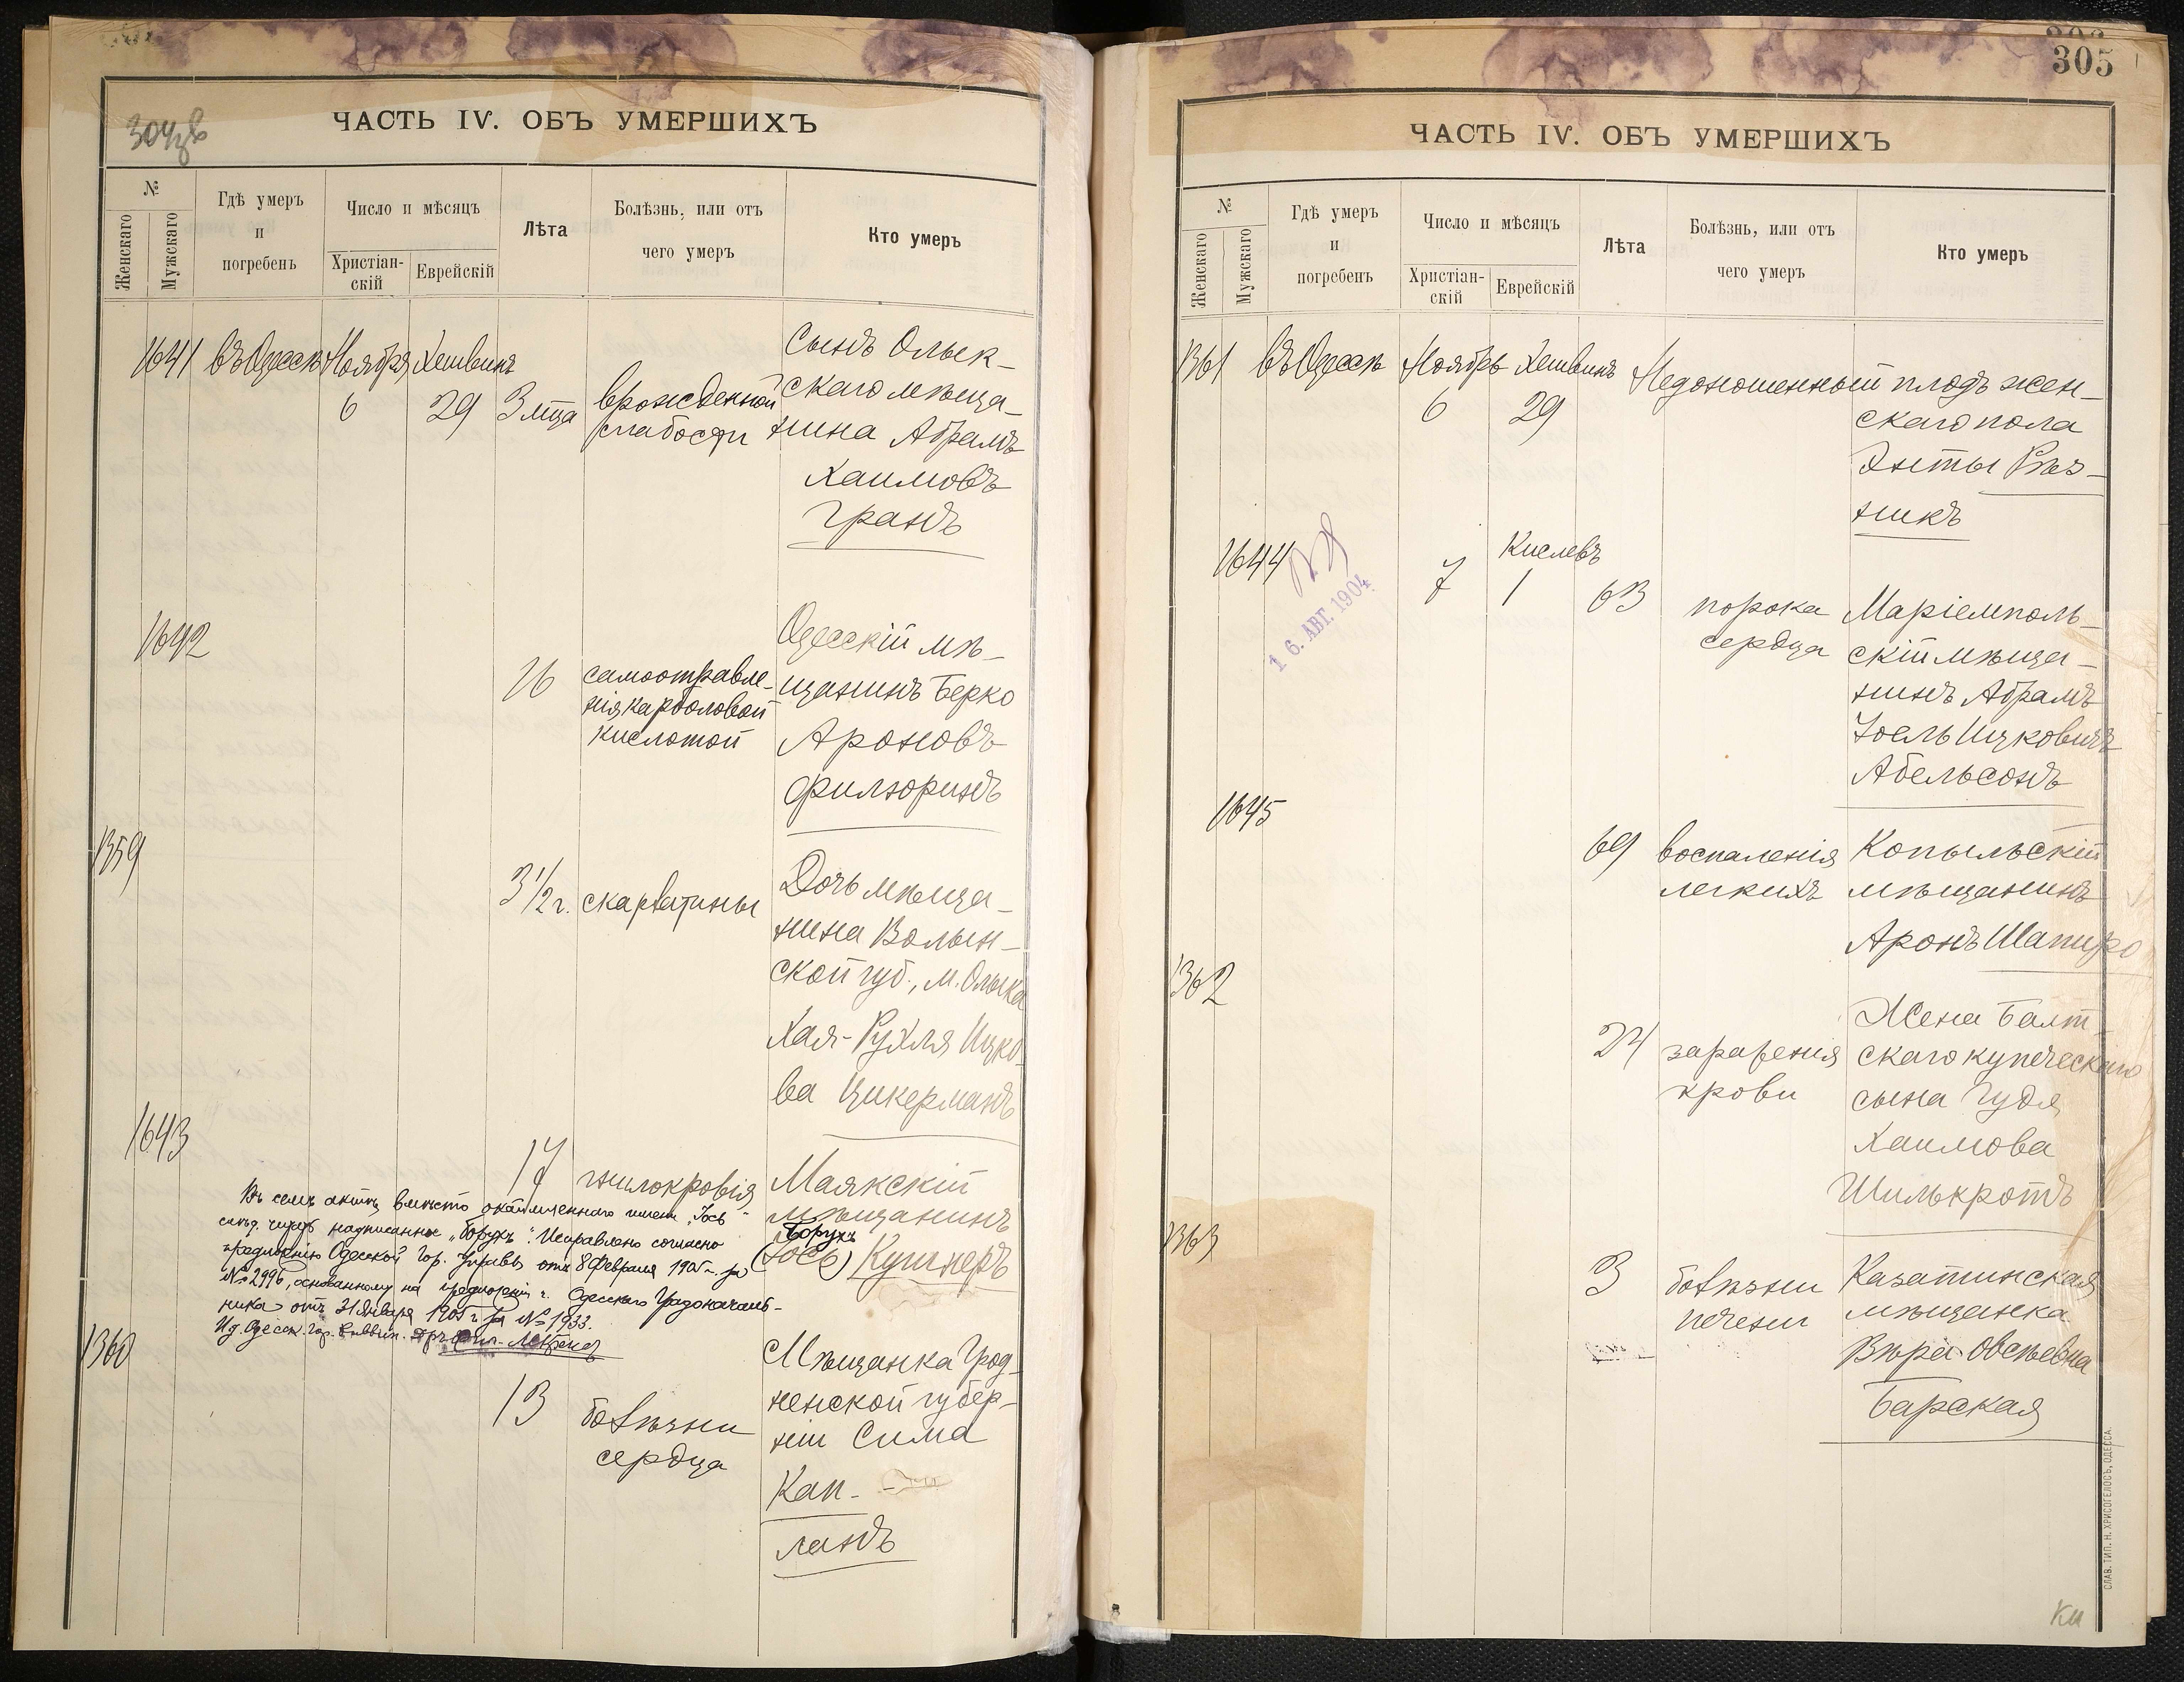 304 об
ЧАСТЬ IV. ОБЪ УМЕРШИХЪ
№
Женскаго
Мужскаго
Гдѣ умеръ
и
погребенъ
Число и мѣсяцъ
Христіан-
скій
Еврейскій
Лѣта
Болѣзнь, или отъ
чего умеръ
Кто умеръ
1641 въ Одессѣ Ноября Хешвинъ
6 29 3 мца
врожденной
слабости
Сынъ Олык-
скаго мѣща-
нина Абрамъ
Хаимовъ
Гранъ
1642
16
самоотравле-
нія карболовой
кислотой
Одесскій мѣ-
щанинъ Берко
Ароновъ
Филюринъ
1359
3 1/2 г. скарлатины
Дочь мѣща-
нина Волын-
ской губ., м. Олыка
Хая-Рухля Ицко-
ва Цикерманъ
1643
17 гнилокровія
Маякскій
мѣщанинъ
Борухъ
(Іось) Кушнеръ
Въ семъ актѣ, вмѣсто окаймленнаго имени "Іось"
слѣд. читать надписанное "Борухъ". Исправлено согласно
предложенію Одесской Гор. Управы отъ 8 Февраля 1905 г. за
№ 2996, основанному на предложеніи г. Одесскаго Градоначаль-
ника отъ 31 Января 1905 г. за № 1933.
И.д. Одесск. Гор. Раввин.
1360
13
болѣзни
сердца
Мѣщанка Грод-
ненской губер-
ніи Сима
Кап-
ланъ
305
ЧАСТЬ IV. ОБЪ УМЕРШИХЪ
№
Женскаго
Мужскаго
Гдѣ умеръ
и
погребенъ
Число и мѣсяцъ
Христіан-
скій
Еврейскій
Лѣта
Болѣзнь, или отъ
чего умеръ
Кто умеръ
1361 въ Одессѣ Ноябрь Хешвинъ
6 29
Недоношенный плодъ жен-
скаго пола
Энты Рѣз-
никъ
1644
1 6. АВГ. 1904
Кислевъ
7 1 63
порока
сердца
Маріемполь-
скій мѣща-
нинъ Абрамъ
Іоель Ицковичъ
Абельсонъ
1645
69 воспаленія
легкихъ
Копыльскій
мѣщанинъ
Аронъ Шапиро
1362
24 зараженія
крови
Жена Балт-
скаго купеческаго
сына Гудя
Хаимова
Шилькротъ
1363
3 болѣзни
печени
Казатинская
мѣщанка
Вѣра Овсѣевна
Барская
СЛАВ. ТИП. Н. ХРИСОГЕЛОСЪ, ОДЕССА.